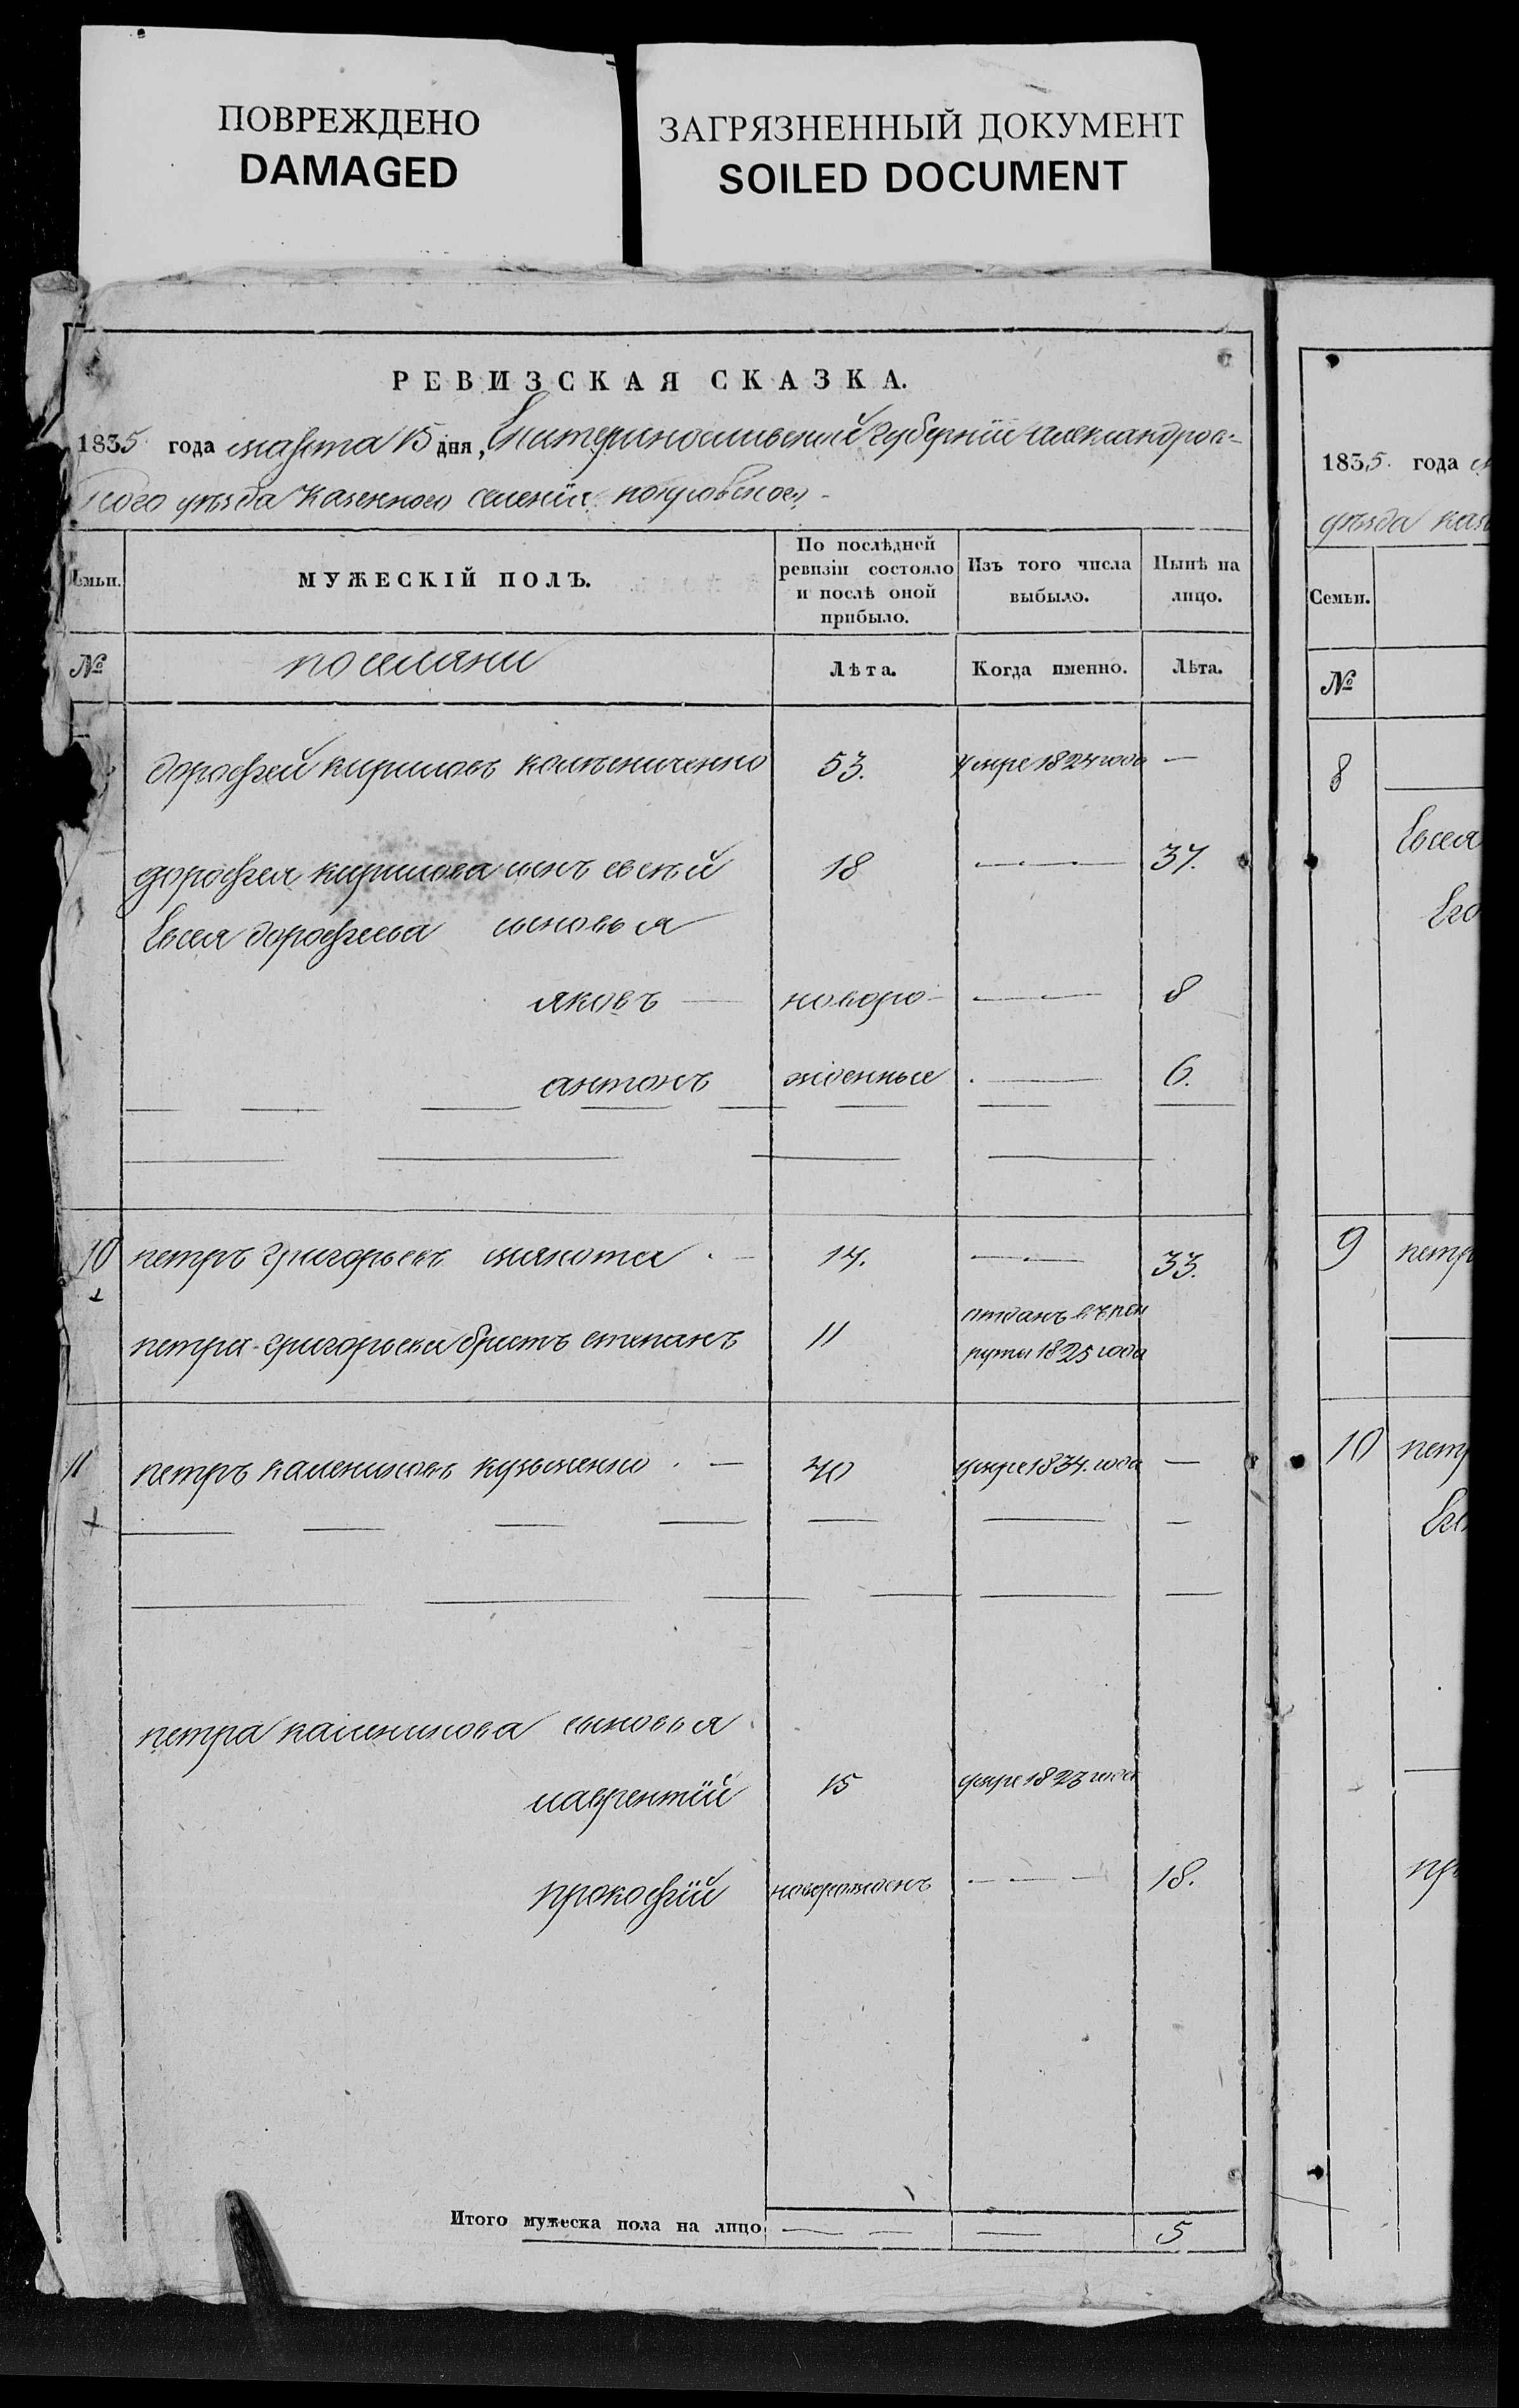 ПОВРЕЖДЕНО
DAMAGED
ЗАГРЯЗНЕННЫЙ ДОКУМЕНТ
SOILED DOCUMENT
РЕВИЗСКАЯ СКАЗКА.
1835 года марта 15 дня, Екатеринославской губернїи александров-
ского уѣзда казенного селенїя покровского
Семьи.
МУЖЕСКІЙ ПОЛЪ.
По послѣдней ревизіи состояло и послѣ оной прибыло.
Изъ того числа выбыло.
Нынѣ на лицо.
№ поселяни Лѣта. Когда именно. Лѣта.
дорофей кириловъ 53. умре 1824 года —
дорофея кирилова сынъ евсей 18 — 37.
Евсея дорофеева сыновья
яковъ — новоро- — 8
антонъ жденные — 6.
10 петръ григорьевъ 14. — 33.
отданъ врекруты 1825 года
петра григорьева братъ степанъ 11
11 петръ калениковъ кузьменко — 40 умре 1834 года —
петра каленикова сыновья
лаврентїй 15 умре 1823 года
прокофїй новорожденъ — 18.
Итого мужеска пола на лицо — — 5
1835 года
уѣзда каз
Семьи.
№
8
Евсея
Его
9 петр
10 петр
Ег
пр